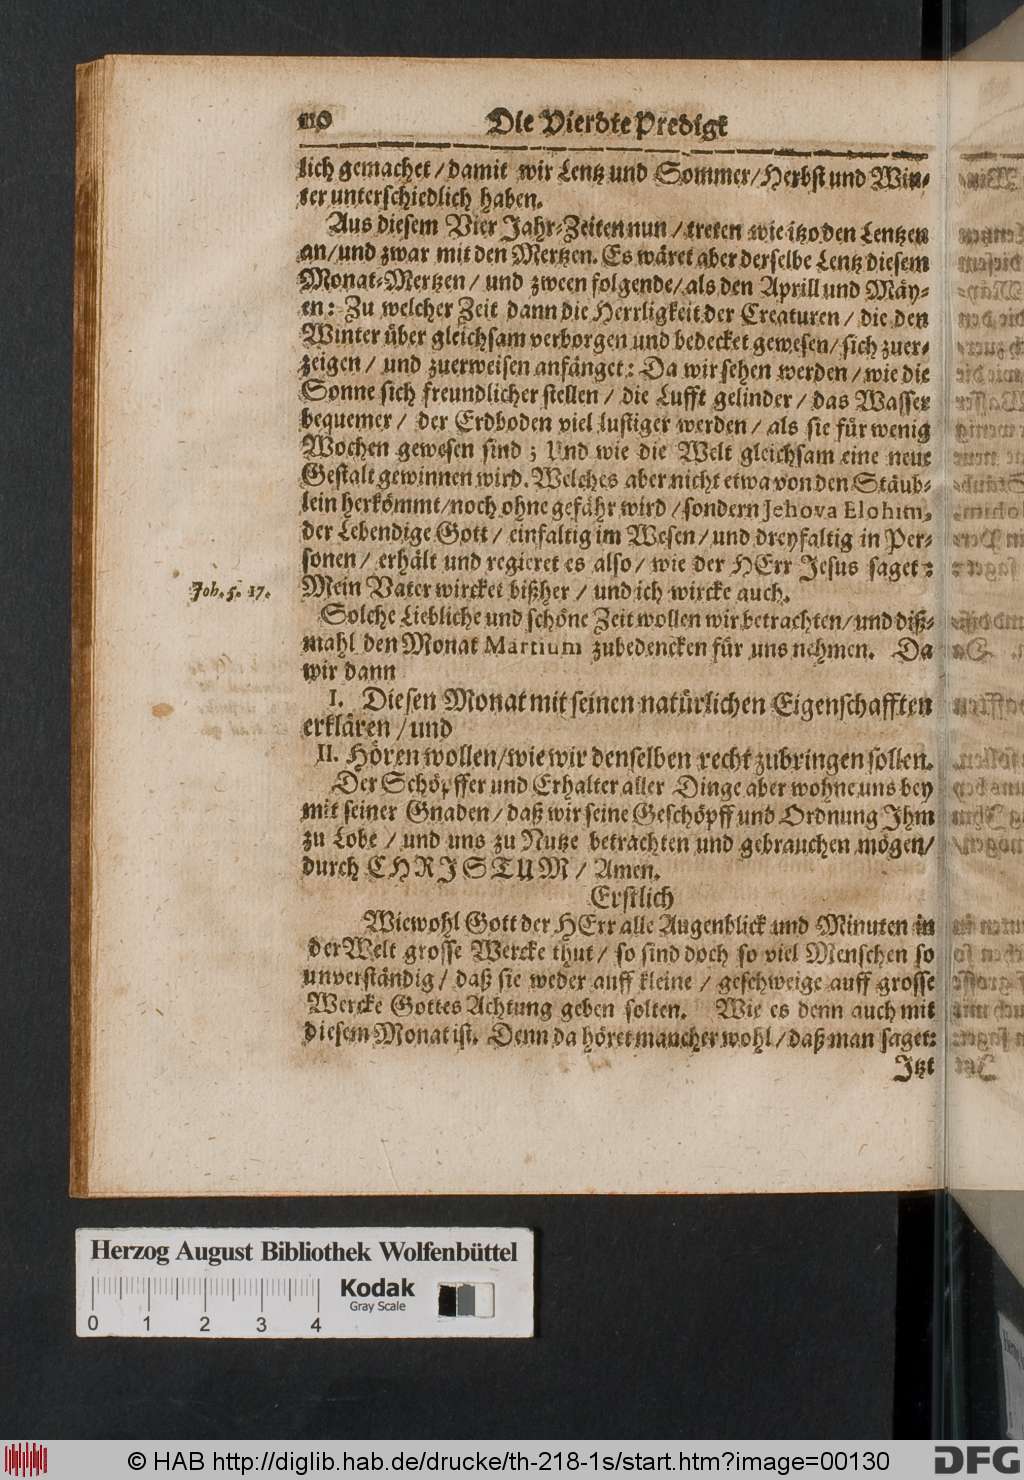 110 Die Vierdte Predigt
lich gemachet / damit wir Lentz und Sommer / Herbst und Win-
ter unterschiedlich haben.
Aus diesem Vier Jahr-Zeiten nun / treten wie itzo den Lentzen
an / und zwar mit den Mertzen. Es wäret aber derselbe Lentz diesem
Monat-Mertzen / und zween folgende / als den Aprill und Mäy-
en: Zu welcher Zeit dann die Herrligkeit der Creaturen / die den
Winter über gleichsam verborgen und bedecket gewesen / sich zuer-
zeigen / und zuerweisen anfänget: Da wir sehen werden / wie die
Sonne sich freundlicher stellen / die Lufft gelinder / das Wasser
bequemer / der Erdboden viel lustiger werden / als sie für wenig
Wochen gewesen sind; Und wie die Welt gleichsam eine neue
Gestalt gewinnen wird. Welches aber nicht etwa von den Stäub-
lein herkömmt / noch ohne gefähr wird / sondern Jehova Elohim,
der Lebendige Gott / einfaltig im Wesen / und dreyfaltig in Per-
sonen / erhält und regieret es also / wie der HErr Jesus saget:
Joh. 5. 17.
Mein Vater wircket bißher / und ich wircke auch.
Solche Liebliche und schöne Zeit wollen wir betrachten / und diß-
mahl den Monat Martium zubedencken für uns nehmen. Da
wir dann
I. Diesen Monat mit seinen natürlichen Eigenschafften
erklären / und
II. Hören wollen / wie wir denselben recht zubringen sollen.
Der Schöpffer und Erhalter aller Dinge aber wohne uns bey
mit seiner Gnaden / daß wir seine Geschöpff und Ordnung Ihm
zu Lobe / und uns zu Nutze betrachten und gebrauchen mögen /
durch CHRISTUM / Amen.
Erstlich
Wiewohl Gott der HErr alle Augenblick und Minuten in
der Welt grosse Wercke thut / so sind doch so viel Menschen so
unverständig / daß sie weder auff kleine / geschweige auff grosse
Wercke Gottes Achtung geben solten. Wie es denn auch mit
diesem Monat ist. Denn da höret mancher wohl / daß man saget:
Jtzt
Herzog August Bibliothek Wolfenbüttel
Kodak
Gray Scale
0 1 2 3 4
© HAB http://diglib.hab.de/drucke/th-218-1s/start.htm?image=00130
DFG